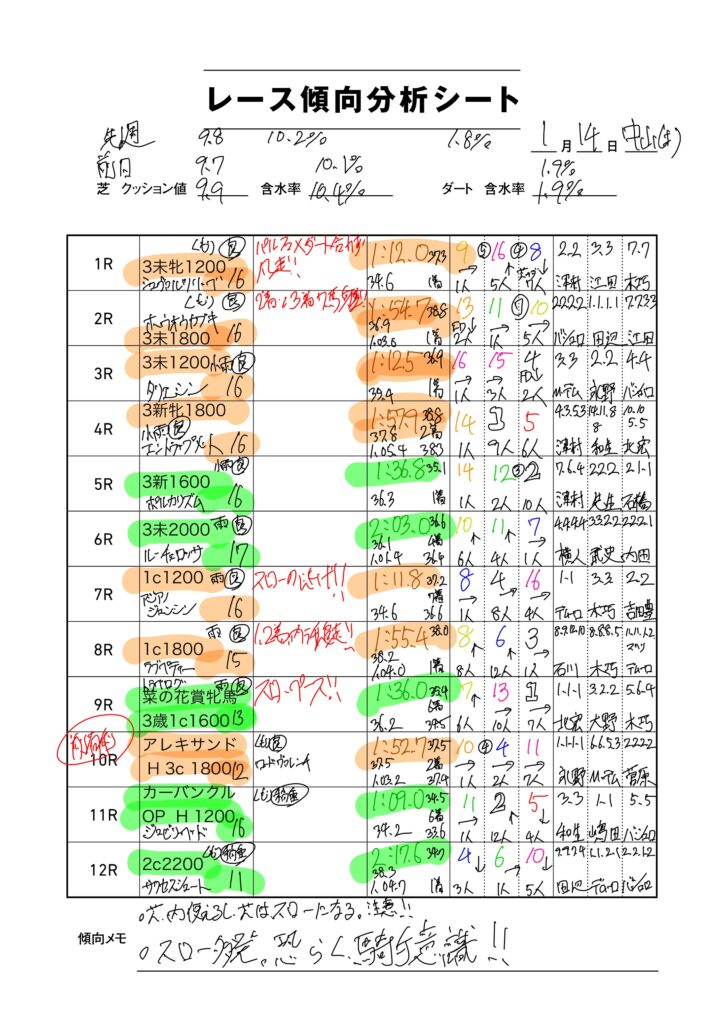 レース傾向分析シート
先週 9.8 10.2% 1.8% 1月14日 中山(土)
前日 9.7 10.1% 1.9%
芝 クッション値 9.9 含水率 10.4% ダート 含水率 1.9%
1R
くもり 良
3未牝1200
16
1:12.0 37.3
34.6 1着
9 ⑤ 16 ④ 8
1人 5人 7人
2.2 3.3 7.7
津村 江田 木巧
2R
くもり 良
3未1800
16
1:54.7 38.8
36.9
1.03.8 1着
13 11 10
2人 1人 5人
2.2.2.2 1.1.1.1 7.7.3.3
バシュロ 田辺 江田
3R
3未1200 小雨 良
16
1:12.5 36.9
35.4 1着
16 15 4
1人 3人 2人
3.3 2.2 4.4
Mデム 永野 バシュロ
4R
3新牝1800
小雨 良
16
1:57.9 38.8
37.8 2着
1.05.4 38.3
14 3 5
1人 9人 6人
4.3.5.3
津村 和生 北宏
5R
小雨 良
3新1600
ボルカリズム 16
1:36.8 35.1
36.3 1着
14 12 2
1人 2人 10人
7.6.4 2.2.2 2.1.1
津村 石橋
6R
3未2000 雨 良
ルーチェロッサ 17
2:03.0 36.6
36.1 4着
1.01.9 36.4
10 11 7
6人 4人 1人
4.4.4.4 3.3.2.2 2.2.2.1
横人 武史 内田
7R
1c1200 雨 良
16
スローの逃げ!!
1:11.8 37.2
7着
34.6 36.6
8 4 16
1人 8人 4人
1.1 3.3 2.2
デムーロ 木巧 吉田豊
8R
雨 良
1c1800
15
1:55.4 38.0
38.2
1.04.0 1着
8 6 3
8人 12人 1人
石川 木巧 デムーロ
9R
雨 良
菜の花賞牝馬
3歳1c1600 13
スローペース!!
1:36.0 33.4
6着
36.2 34.5
7 13 1
6人 10人 7人
1.1.1 3.2.2 5.6.4
北宏 大野 木巧
10R
アレキサンド
H 3c 1800 12
くもり 良
1:52.7 37.5
37.5 2着
1.03.2 37.4
10 ④ 4 11
1人 2人 7人
1.1.1.1 6.6.5.3 2.2.2.2
永野 Mデム 菅原
11R
カーバンクル
OP H 1200
くもり 稍重
16
1:09.0 34.5
6着
34.2 33.6
11 2 5
1人 12人 4人
3.3 1.1 5.5
和生 嶋田 バシュロ
12R
くもり 稍重
2c2200
サクセスシュート 11
2:17.6 34.7
38.3
1.04.7 1着
4 6 10
3人 1人 5人
田辺 デムーロ バシュロ
傾向メモ
○芝、内使えるし芝はスローになる。注意!!
○スロー多発。恐らく騎手意識!!